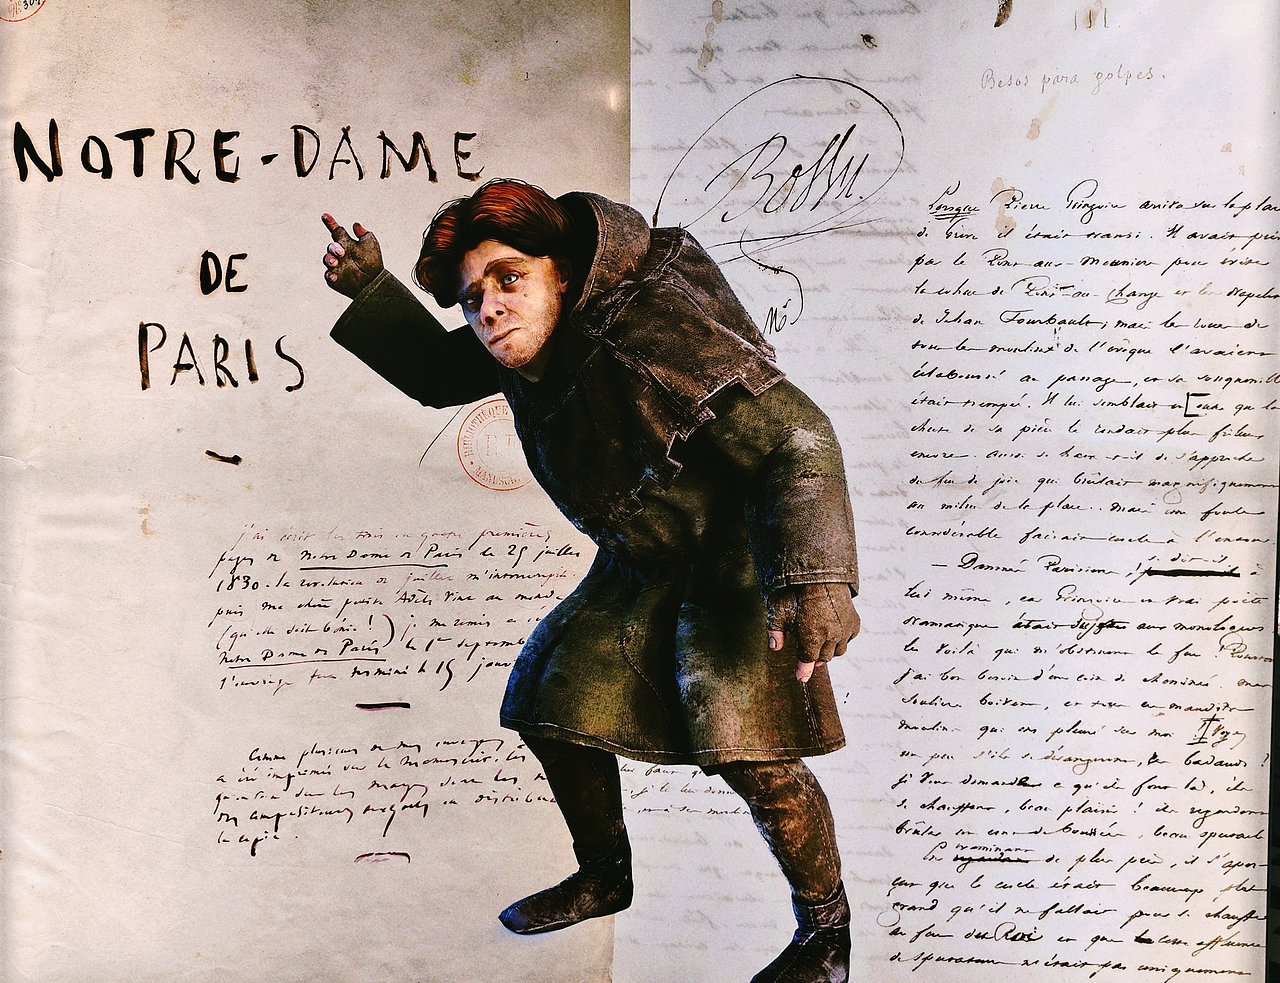 NOTRE-DAME
DE
PARIS
BIBLIOTHÈQUE
MANUSC
j'ai écrit les trois ou quatre premières
pages de Notre Dame de Paris le 25 juillet
1830. la révolution de juillet m'interrompit
puis ma chère petite Adèle vint au monde
(qu'elle soit bénie!) je me remis à
Notre Dame de Paris le 1er septembre
l'ouvrage fut terminé le 15 janv
Comme plusieurs de mes ouvrages
a été imprimé sur le manuscrit. les
dans les
compositeurs
la copie.
Besos para golpes.
Bossu.
Lorsque Pierre Gringoire arriva sur la place
de Grève il était transi. Il avait pris
par le Pont-aux-Meuniers pour éviter
la cohue du Pont-au-Change et les drapelets
de Jehan Fourbault; mais les roues de
tous les moulins de l'évêque l'avaient
éclaboussé au passage, et sa souquenille
était trempée. Il lui semblait en outre que la
chute de sa pièce le rendait plus frileux
encore. aussi se hâta-t-il de s'approcher
du feu de joie qui brûlait magnifiquement
au milieu de la place. mais une foule
considérable faisait cercle à l'entour.
— Damnés Parisiens! se dit-il à
lui même, car Gringoire en vrai poète
dramatique était sujet aux monologues
les voilà qui m'obstruent le feu! Pourtant
j'ai bon besoin d'un coin de cheminée. mes
souliers boivent, et tous ces maudits
moulins qui ont pleuré sur moi
un peu s'ils se dérangeront, ces badauds!
je vous demande ce qu'ils font là! ils
se chauffent, beau plaisir! ils regardent
brûler un cent de bourrées, beau spectacle!
En examinant de plus près, il s'aper-
çut que le cercle était beaucoup plus
grand qu'il ne fallait pour se chauffer
au feu du Roi et que cette affluence
de spectateurs n'était pas uniquement